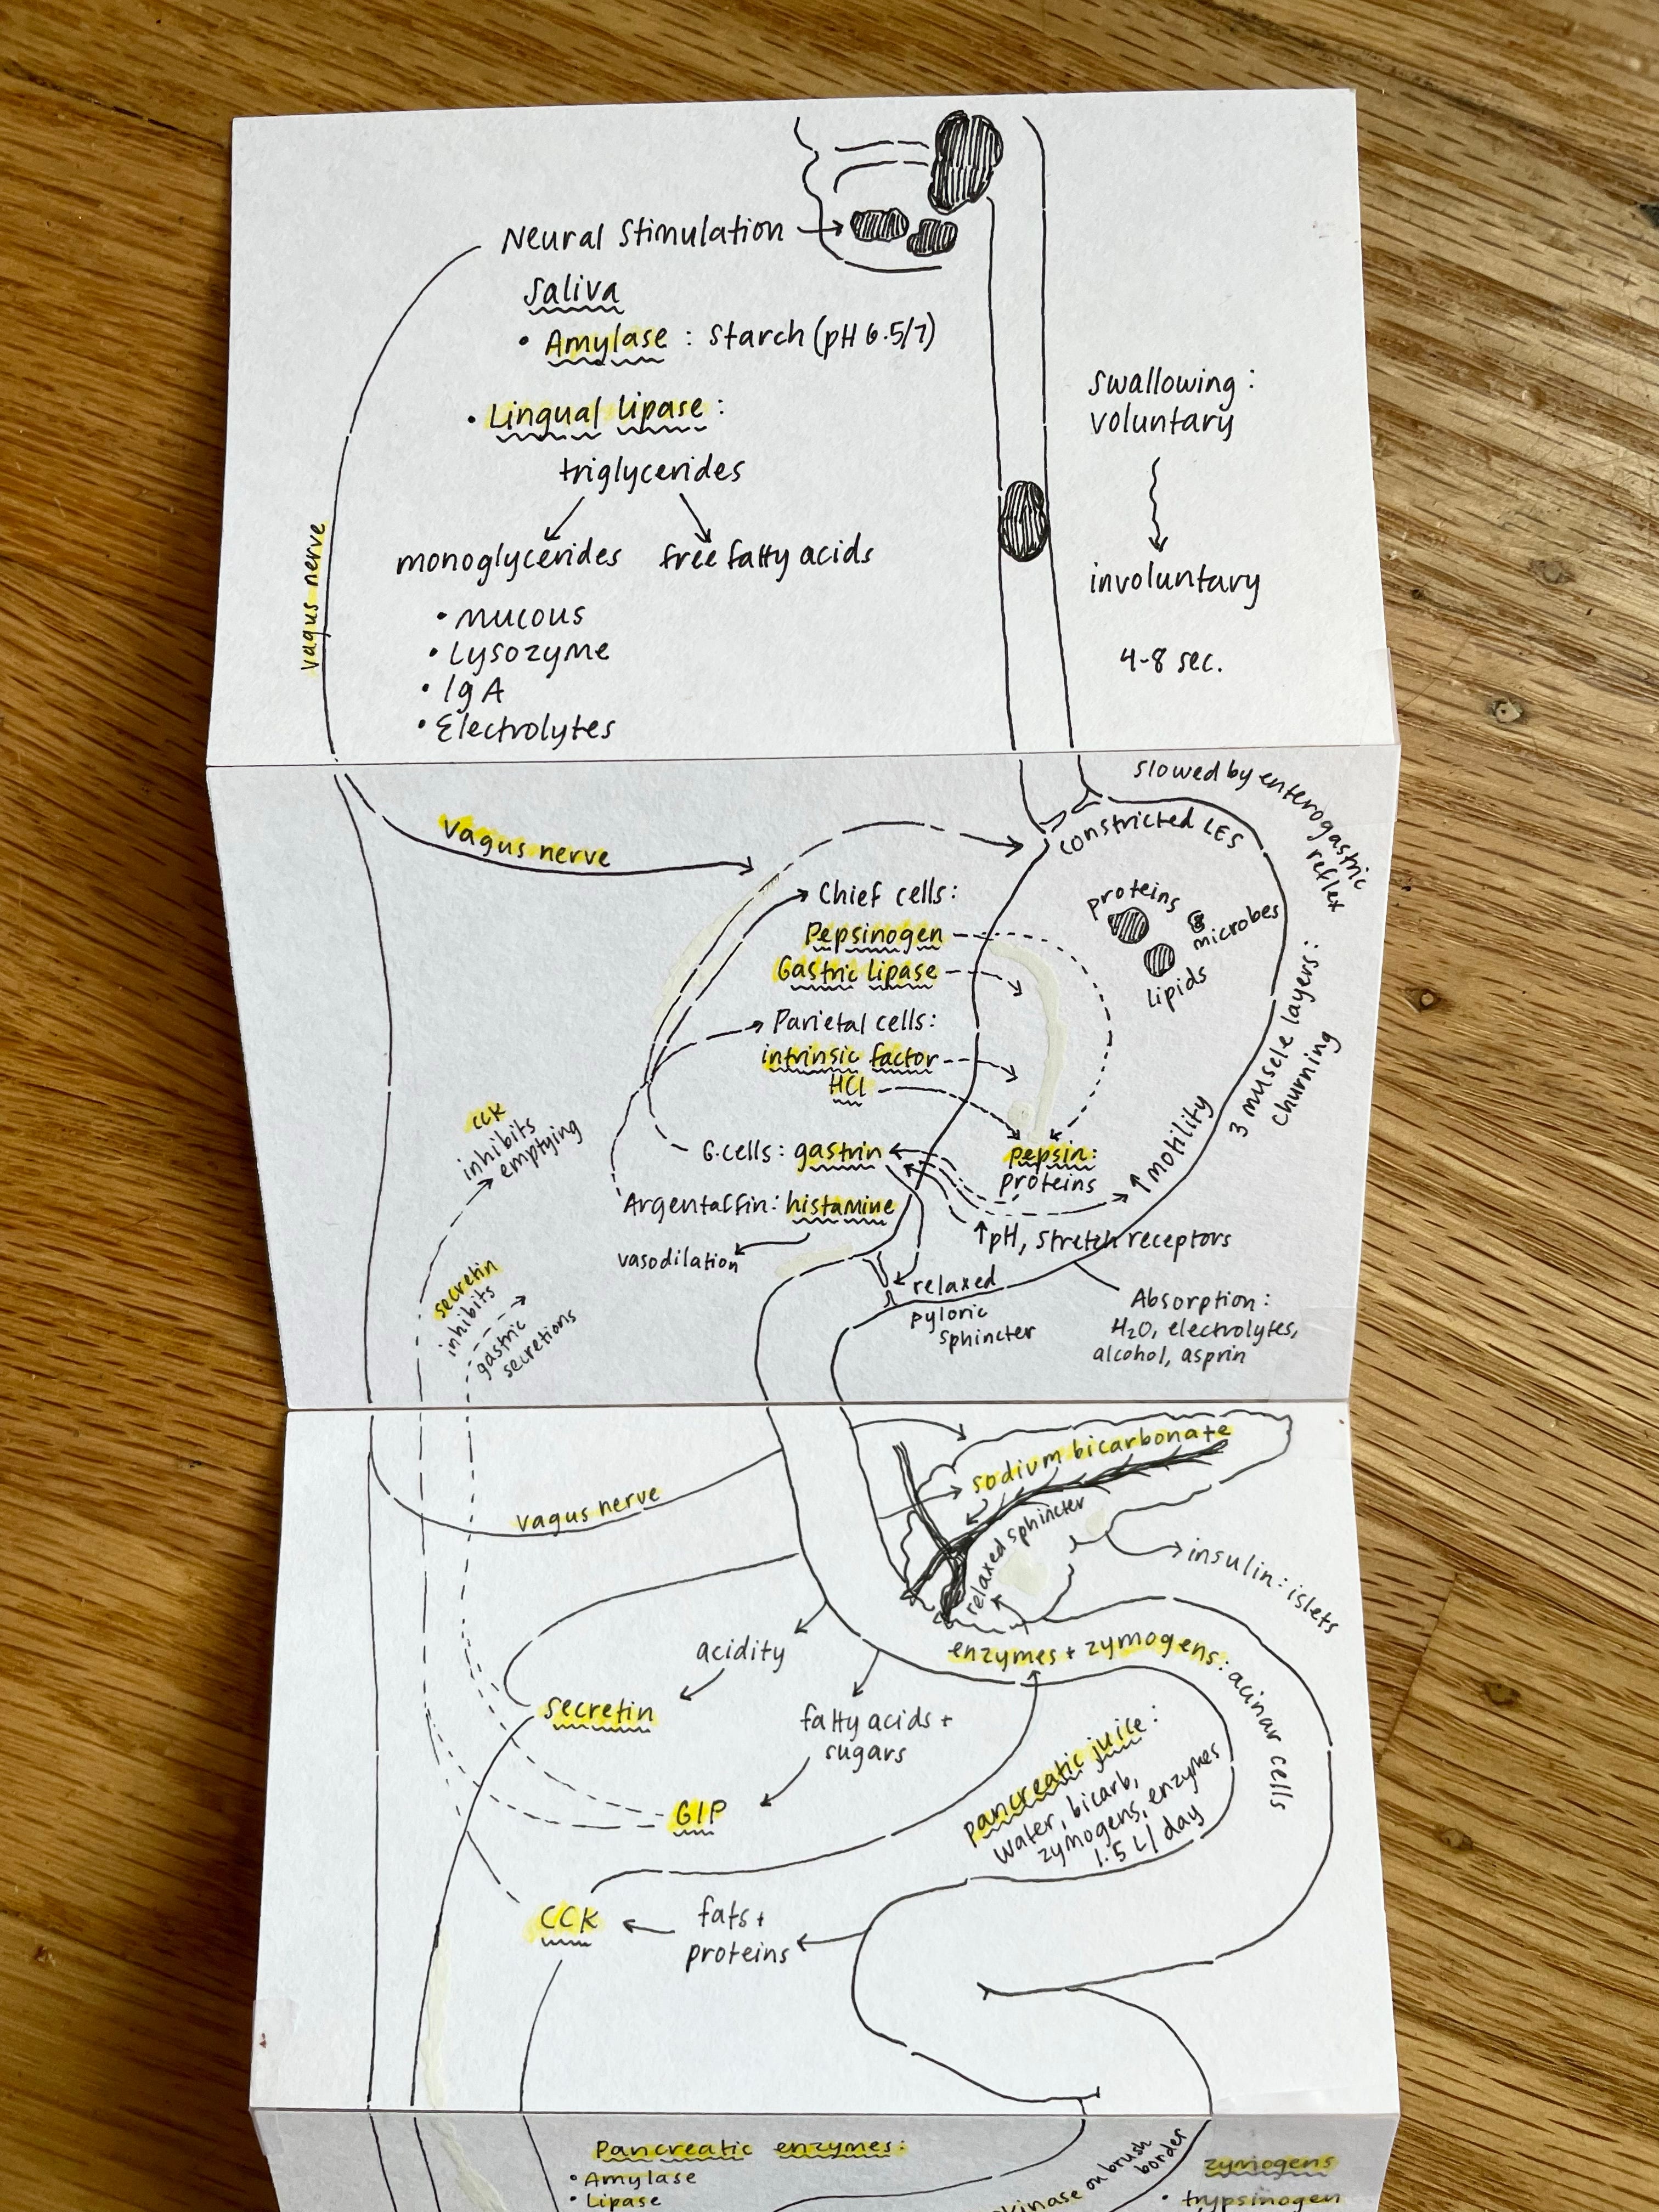 Neural Stimulation
Saliva
• Amylase : Starch (pH 6.5/7)
• Lingual lipase :
triglycerides
monoglycerides free fatty acids
• mucous
• Lysozyme
• IgA
• Electrolytes
vagus nerve
swallowing :
voluntary
involuntary
4-8 sec.
vagus nerve
slowed by enterogastric
reflex
constricted LES
Chief cells:
Pepsinogen
Gastric lipase
Parietal cells:
intrinsic factor
HCl
G.cells: gastrin
Argentaffin: histamine
vasodilation
proteins
microbes
lipids
3 muscle layers:
churning
↑ motility
pepsin:
proteins
↑pH, stretch receptors
relaxed
pyloric
sphincter
Absorption:
H₂O, electrolytes,
alcohol, asprin
CCK
inhibits
emptying
secretin
inhibits
gastric
secretions
vagus nerve
sodium bicarbonate
relaxed sphincter
insulin: islets
enzymes + zymogens: acinar cells
acidity
secretin
fatty acids +
sugars
GIP
pancreatic juice:
water, bicarb,
zymogens, enzymes
1.5 L/day
CCK
fats +
proteins
Pancreatic enzymes:
• Amylase
• Lipase
kinase on brush
border
zymogens
• trypsinogen